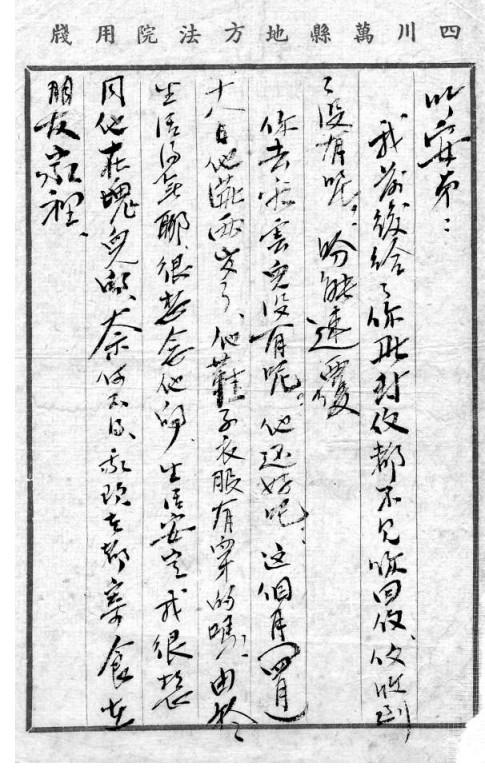 四川萬縣地方法院用牋
以安弟：
我前後给了你此封信都不见你回信、信收到
了没有呢。盼能速覆
你去看雲兒没有呢。他还好吧、这個月（四月）
十八日他滿两岁了、他鞋子衣服有穿的嗎、由於
生活的無聊、很想念他呵、生活安定我很想
同他在塊兒、奈何不得、我现在都寄食在
朋友家裡、